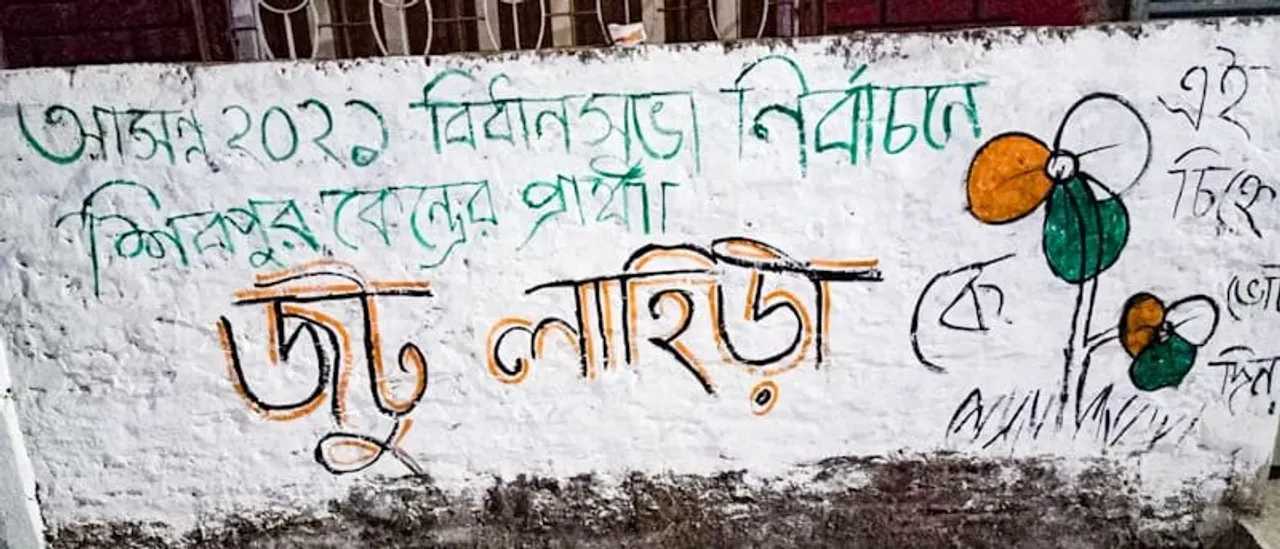 আসন্ন ২০২১ বিধানসভা নির্বাচনে
শিবপুর কেন্দ্রের প্রার্থী
জটু লাহিড়ী
কে
এই
চিহ্নে
ভো
দিন